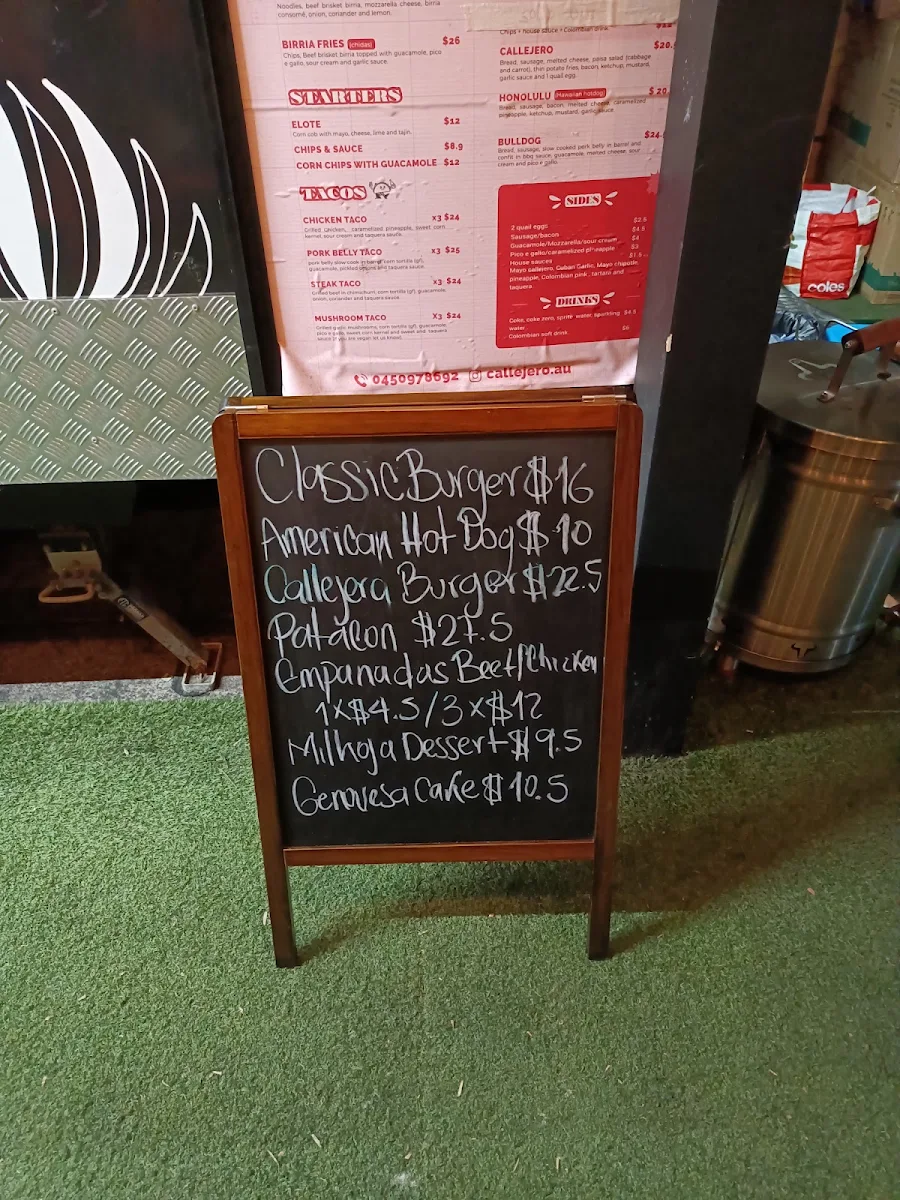 Noodles, beef brisket birria, mozzarella cheese, birria
consomé, onion, coriander and lemon.
BIRRIA FRIES (chidas) $26
Chips, Beef brisket birria topped with guacamole, pico
e gallo, sour cream and garlic sauce.
STARTERS
ELOTE $12
Corn cob with mayo, cheese, lime and tajin.
CHIPS & SAUCE $8.9
CORN CHIPS WITH GUACAMOLE $12
TACOS
CHICKEN TACO x3 $24
Grilled chicken, caramelized pineapple, sweet corn
kernel, sour cream and taquera sauce.
PORK BELLY TACO x3 $25
pork belly slow cook in barrel, corn tortilla (gf),
guacamole, pickled onions and taquera sauce.
STEAK TACO x3 $24
Grilled beef in chimichurri, corn tortilla (gf), guacamole,
onion, coriander and taquera sauce.
MUSHROOM TACO X3 $24
Grilled garlic mushrooms, corn tortilla (gf), guacamole,
pico e gallo, sweet corn kernel and sweet corn and taquera
sauce (if you are vegan let us know).
$22
Chips + house sauce + Colombian drink.
CALLEJERO $20.
Bread, sausage, melted cheese, paisa salad (cabbage
and carrot), thin potato fries, bacon, ketchup, mustard,
garlic sauce and 1 quail egg.
HONOLULU (Hawaiian hotdog) $20.
Bread, sausage, bacon, melted cheese, caramelized
pineapple, ketchup, mustard, garlic sauce.
BULLDOG $24.
Bread, sausage, slow cooked pork belly in barrel and
confit in bbq sauce, guacamole, melted cheese, sour
cream and pico e gallo.
SIDES
2 quail eggs $2.5
Sausage/bacon $4.5
Guacamole/Mozzarella/sour cream $4
Pico e gallo/caramelized pineapple $3
House sauces $1.5
Mayo callejero, Cuban Garlic, Mayo chipotle,
pineapple, Colombian pink, tartara and
taquera
DRINKS
Coke, coke zero, sprite water, sparkling $4.5
water
Colombian soft drink $6
0450978692 callejero.au
coles
Classic Burger $16
American Hot Dog $10
Callejera Burger $22.5
Patacon $27.5
Empanadas Beef/Chicken
1x$4.5/3x$12
Milhoja Dessert $9.5
Genovesa Cake $10.5